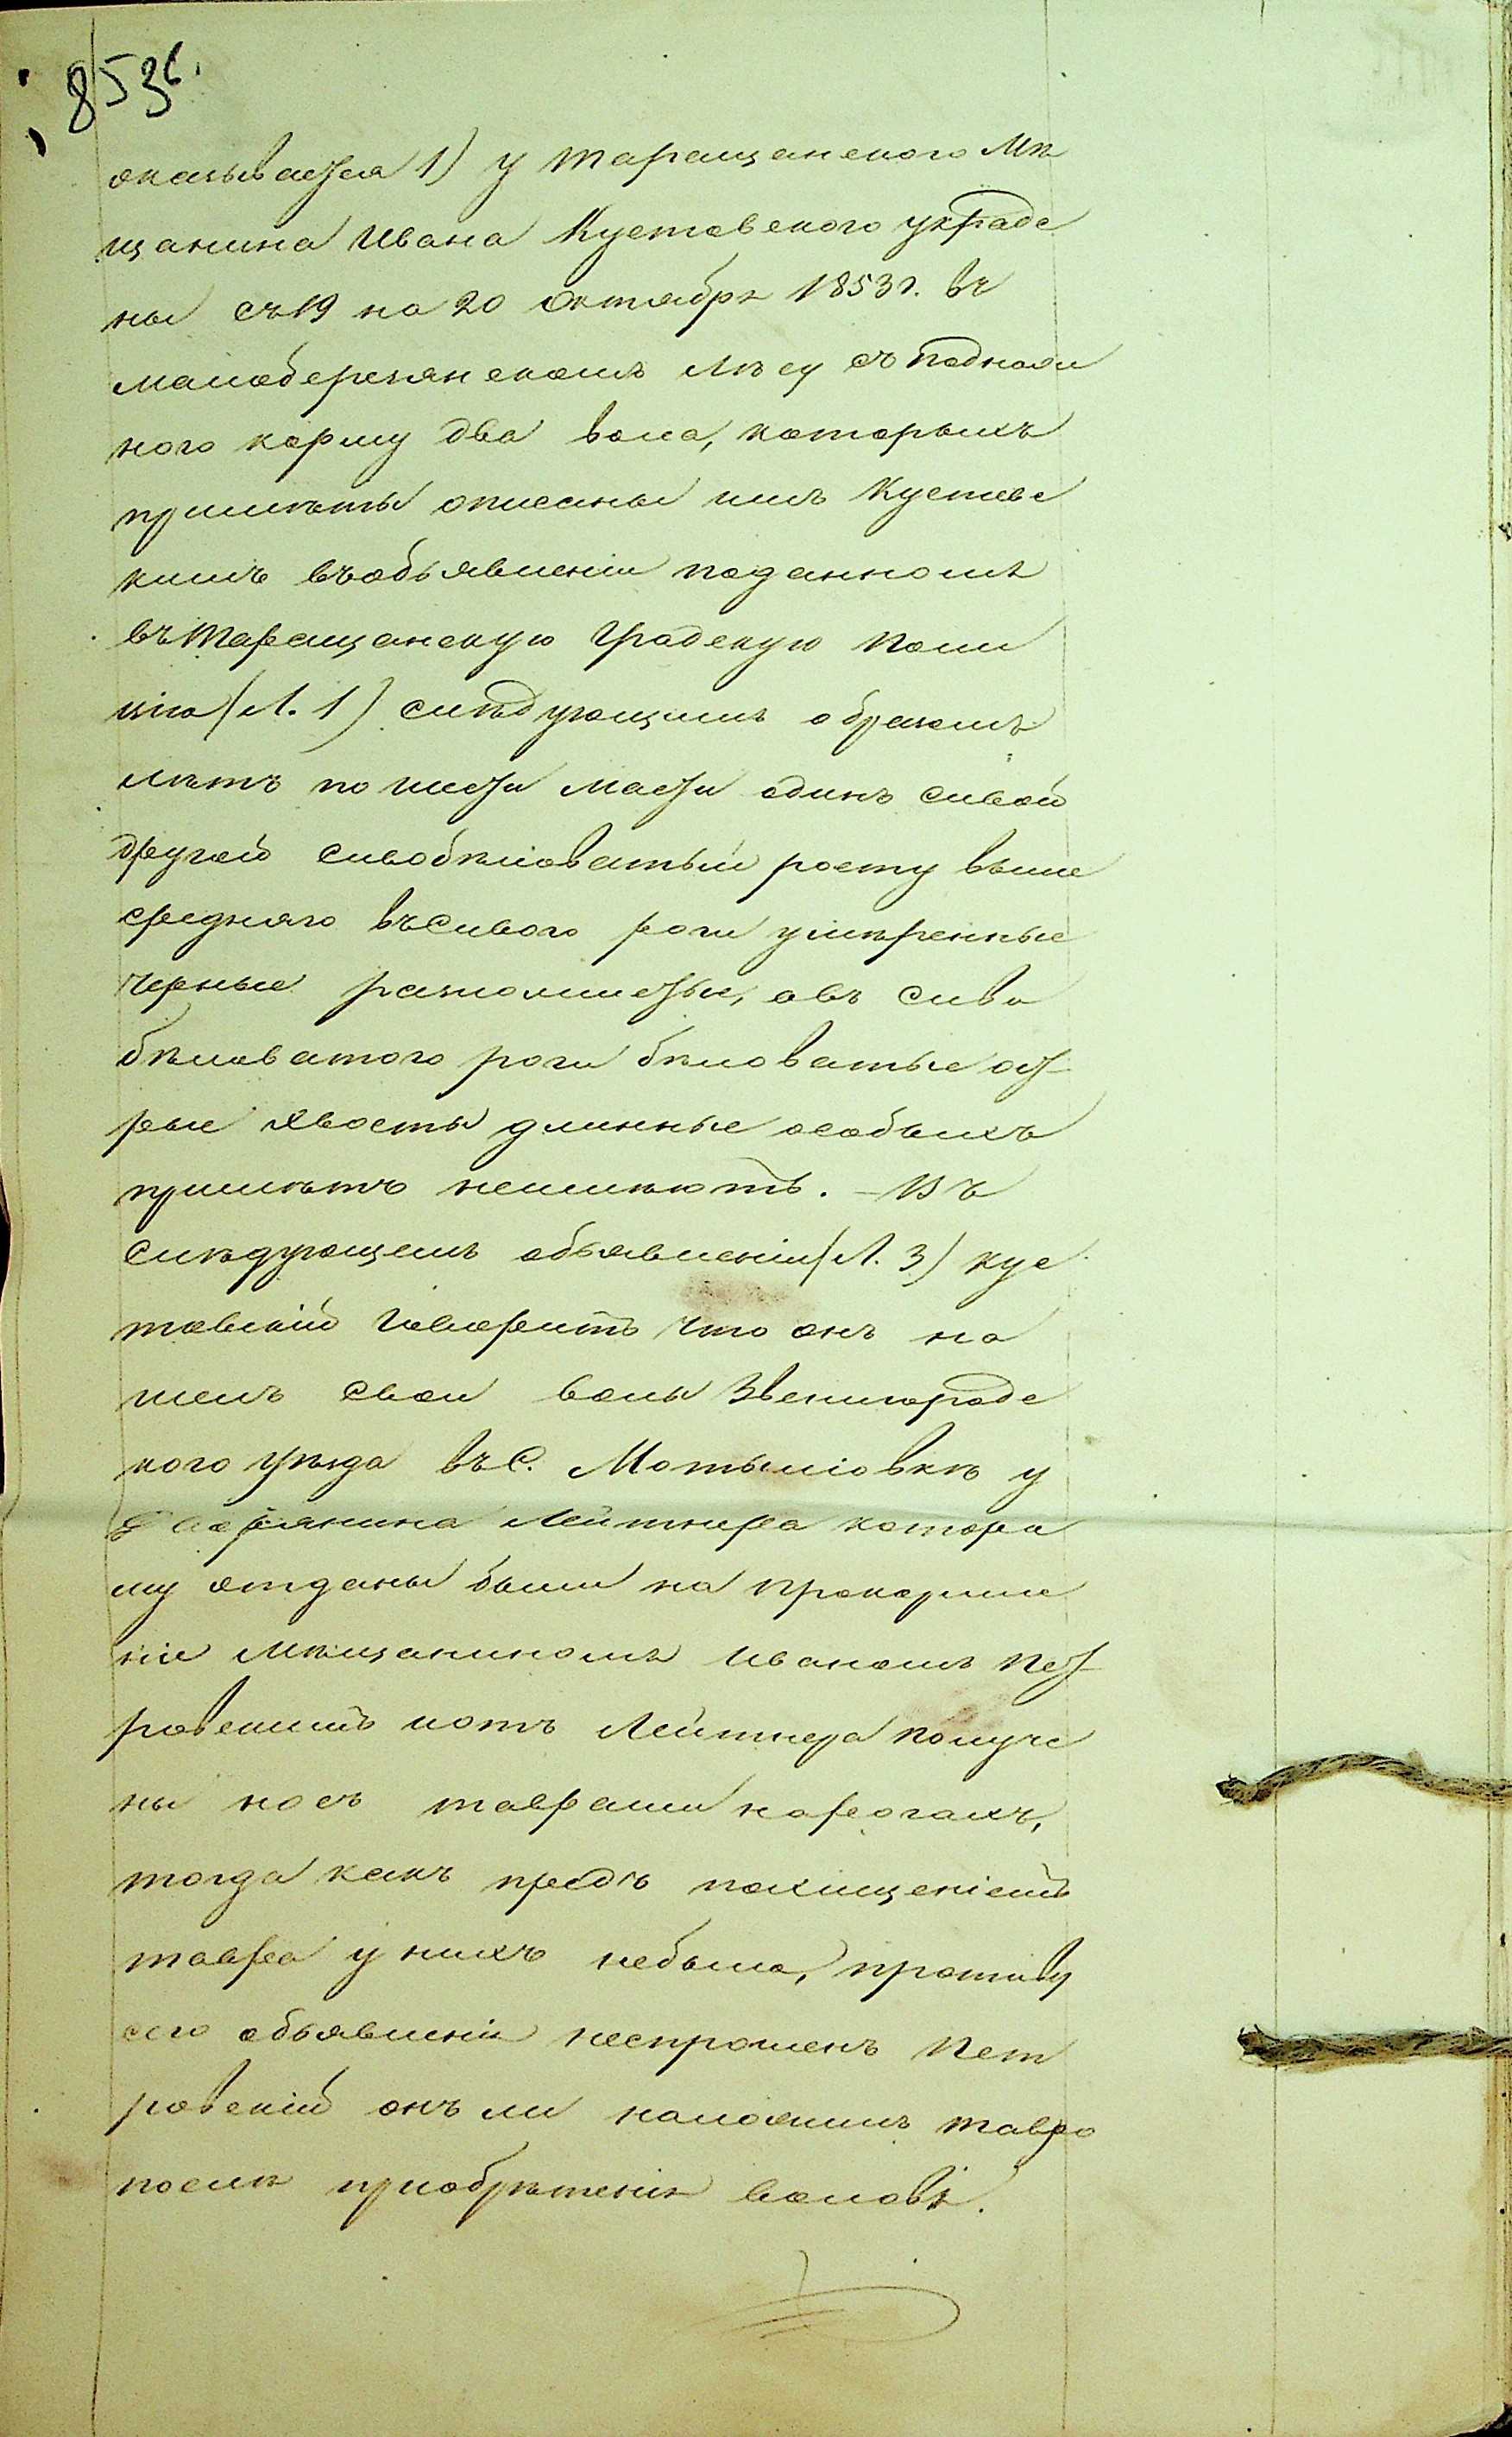 853
оказывается 1) у Таращанского Мѣ
щанина Ивана Кустовского украде
ны съ 19 на 20 Октября 1853 г. въ
малоберезянскомъ лѣсу съ поднож
ного корму два вола, которыхъ
примѣты описаны имъ Кустовс
кимъ въ объявленіи поданномъ
въ Таращанскую Градскую Поли
цію (Л. 1) слѣдующимъ образомъ
лѣтъ по шести масти одинъ сивой
другой сивобѣловатый росту выше
средняго въ сивого роги умѣренные
черные разполистые, авъ сиво
бѣловатого роги бѣловатые ост
рые хвосты длинные особыхъ
примѣтъ неимѣютъ. – Въ
слѣдующемъ объявленіи (Л. 3) Кус
товскій говоритъ что онъ на
шелъ свои волы Звенигородс
кого уѣзда въ С. Мотыловкѣ у
Дворянина Лейтнера которо
му отданы были на прокормле
ніе Мѣщаниномъ Иваномъ Пет
ровскимъ и отъ Лейтнера получе
ны но съ таврами на рогахъ,
тогда какъ предъ похищеніемъ
тавра у нихъ небыло, противу
сего объявленія неспрошенъ Пет
ровскій онъ ли наложилъ тавро
послѣ приобрѣтенія воловъ.